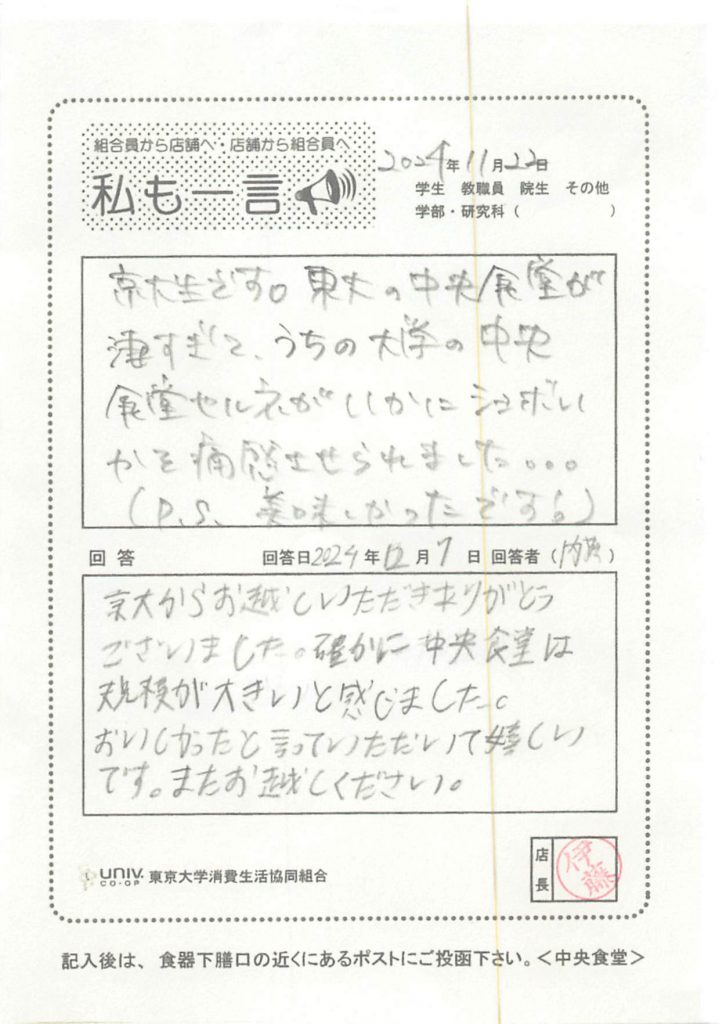 組合員から店舗へ・店舗から組合員へ
私も一言
2024年11月22日
学生 教職員 院生 その他
学部・研究科( )
京大生です。東大の中央食堂が
凄すぎて、うちの大学の中央
食堂セルネがいかにショボい
かを痛感させられました...
(P.S. 美味しかったです。)
回答 回答日2024年12月7日 回答者( )
京大からお越しいただきありがとう
ございました。確かに中央食堂は
規模が大きいと感じました。
おいしかったと言っていただいて嬉しい
です。またお越しください。
UNIV. CO-OP 東京大学消費生活協同組合
店長 伊藤
記入後は、食器下膳口の近くにあるポストにご投函下さい。<中央食堂>